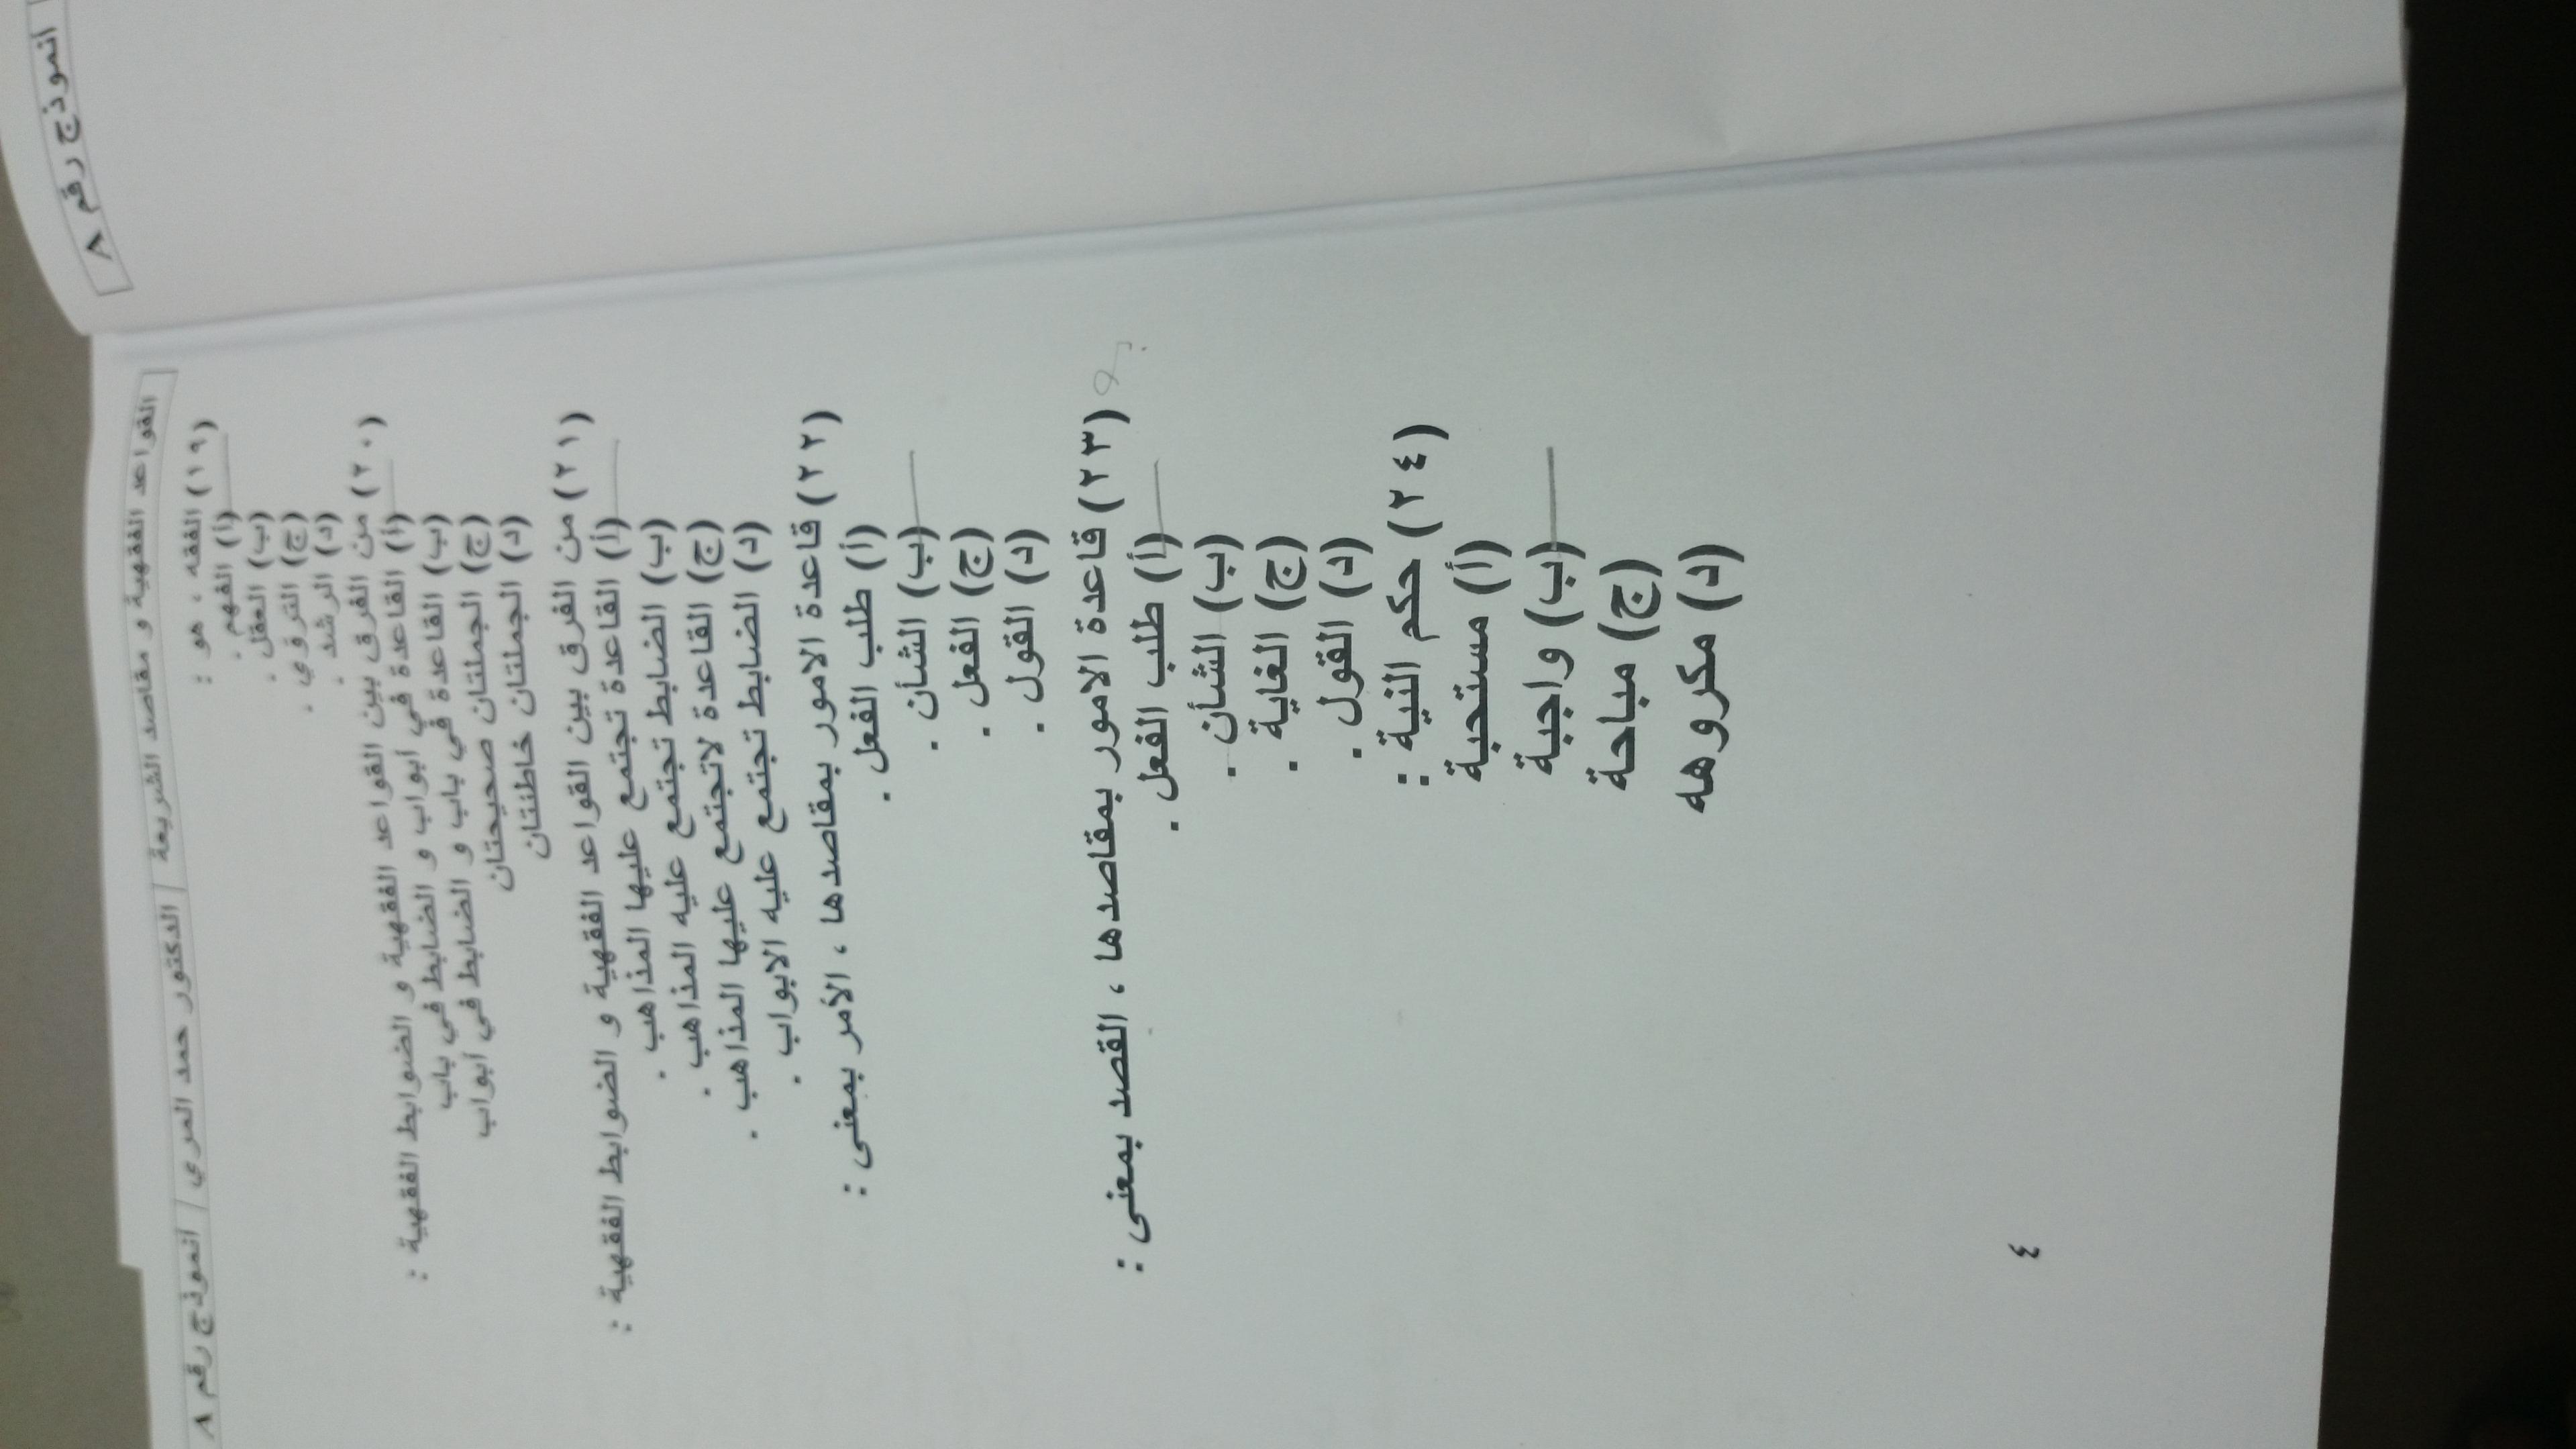 أنموذج رقم ٨
القواعد الفقهية و مقاصد الشريعة / الدكتور حمد المري / أنموذج رقم ٨
(١٩) الفقه ، هو :
(أ) الفهم .
(ب) العقل .
(ج) الترقي .
(د) الرشد .
(٢٠) من الفرق بين القواعد الفقهية و الضوابط الفقهية :
(أ) القاعدة في أبواب و الضابط في باب
(ب) القاعدة في باب و الضابط في أبواب
(ج) الجملتان صحيحتان
(د) الجملتان خاطئتان
(٢١) من الفرق بين القواعد الفقهية و الضوابط الفقهية :
(أ) القاعدة تجتمع عليها المذاهب .
(ب) الضابط تجتمع عليه المذاهب .
(ج) القاعدة لاتجتمع عليها المذاهب .
(د) الضابط تجتمع عليه الابواب .
(٢٢) قاعدة الامور بمقاصدها ، الأمر بمعنى :
(أ) طلب الفعل .
(ب) الشأن .
(ج) الفعل .
(د) القول .
(٢٣) قاعدة الامور بمقاصدها ، القصد بمعنى :
(أ) طلب الفعل .
(ب) الشأن .
(ج) الغاية .
(د) القول .
(٢٤) حكم النية :
(أ) مستحبة
(ب) واجبة
(ج) مباحة
(د) مكروهه
٤